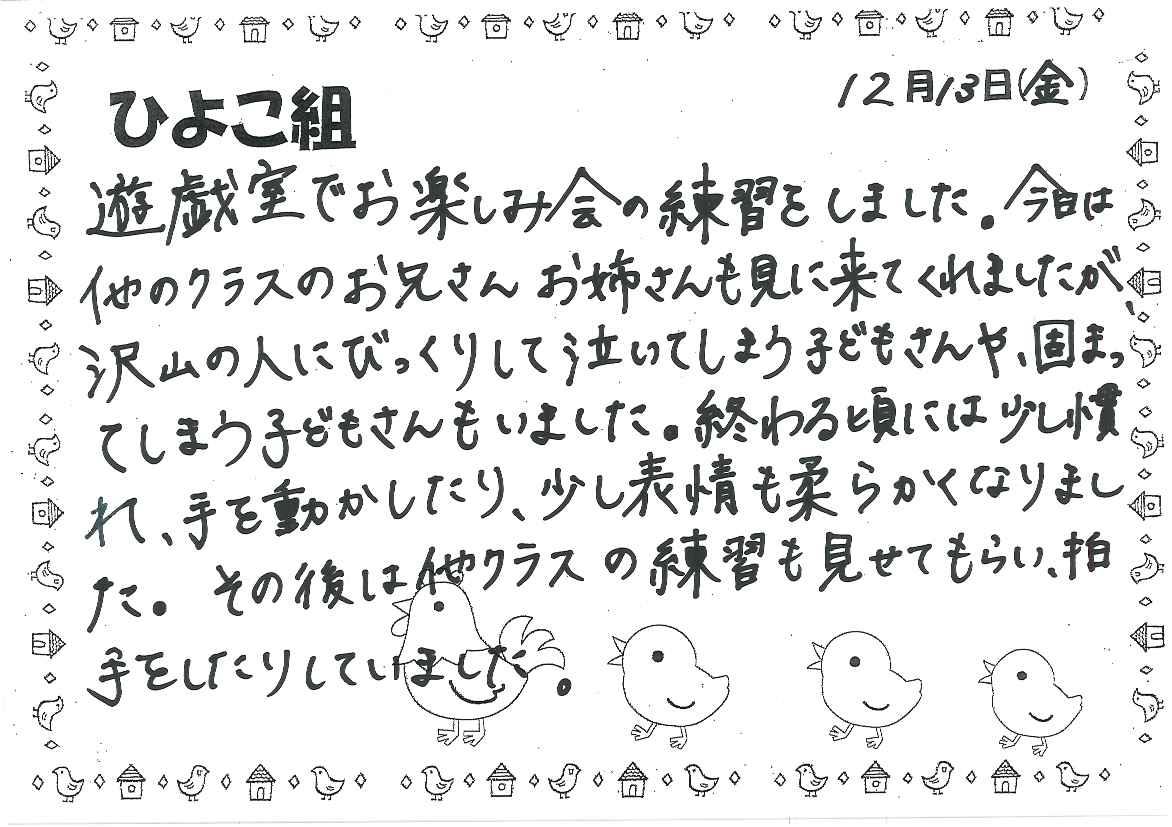 ひよこ組
12月13日(金)
遊戯室でお楽しみ会の練習をしました。今日は
他のクラスのお兄さん お姉さんも見に来てくれましたが、
沢山の人にびっくりして泣いてしまう子どもさんや、固まっ
てしまう子どもさんもいました。終わる頃には少し慣
れ、手を動かしたり、少し表情も柔らかくなりまし
た。その後は他クラスの練習も見せてもらい、拍
手をしたりしていました。